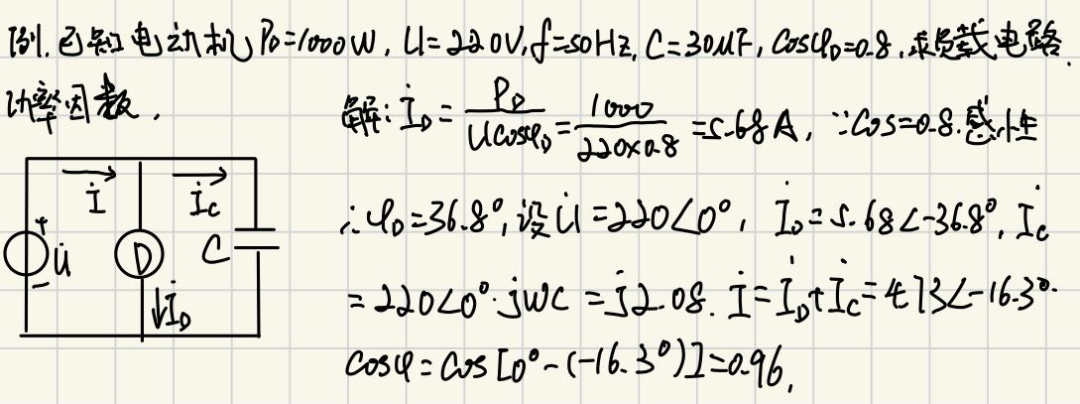 例.已知电动机P_D=1000W,U=220V,f=50Hz,C=30μF,cosφ_D=0.8.求负载电路
功率因数.
解:İ_D=P_D/(Ucosφ_D)=1000/(220×0.8)=5.68A,∵cos=0.8.感性
∴φ_D=36.8°,设U̇=220∠0°,İ_D=5.68∠-36.8°,İ_C
=220∠0°·jωC=j2.08.İ=İ_D+İ_C=4.73∠-16.3°.
cosφ=cos[0°-(-16.3°)]=0.96,
İ İ_C
+ U̇ - D C
İ_D